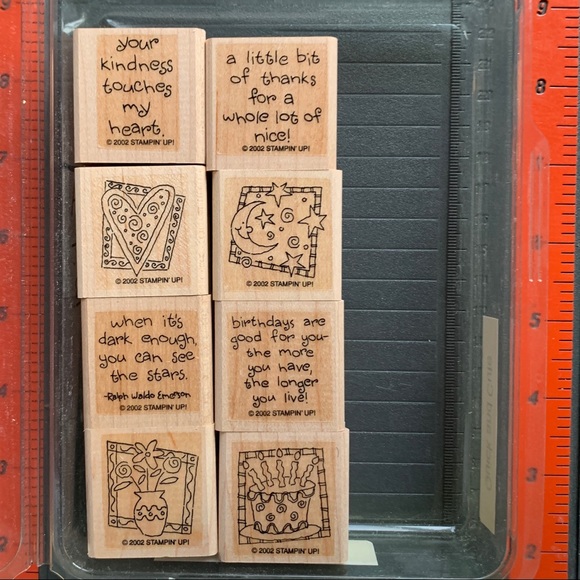 your
kindness
touches
my
heart.
© 2002 STAMPIN' UP!
a little bit
of thanks
for a
whole lot of
nice!
© 2002 STAMPIN' UP!
© 2002 STAMPIN' UP!
© 2002 STAMPIN' UP!
when it's
dark enough,
you can see
the stars.
-Ralph Waldo Emerson
© 2002 STAMPIN' UP!
birthdays are
good for you-
the more
you have,
the longer
you live!
© 2002 STAMPIN' UP!
© 2002 STAMPIN' UP!
© 2002 STAMPIN' UP!
8
7
6
5
4
3
2
9
8
5
4
3
2